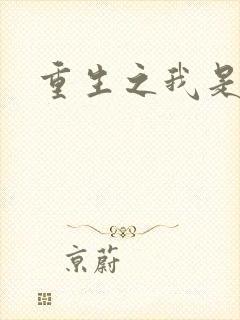 重生之我是
京蔚